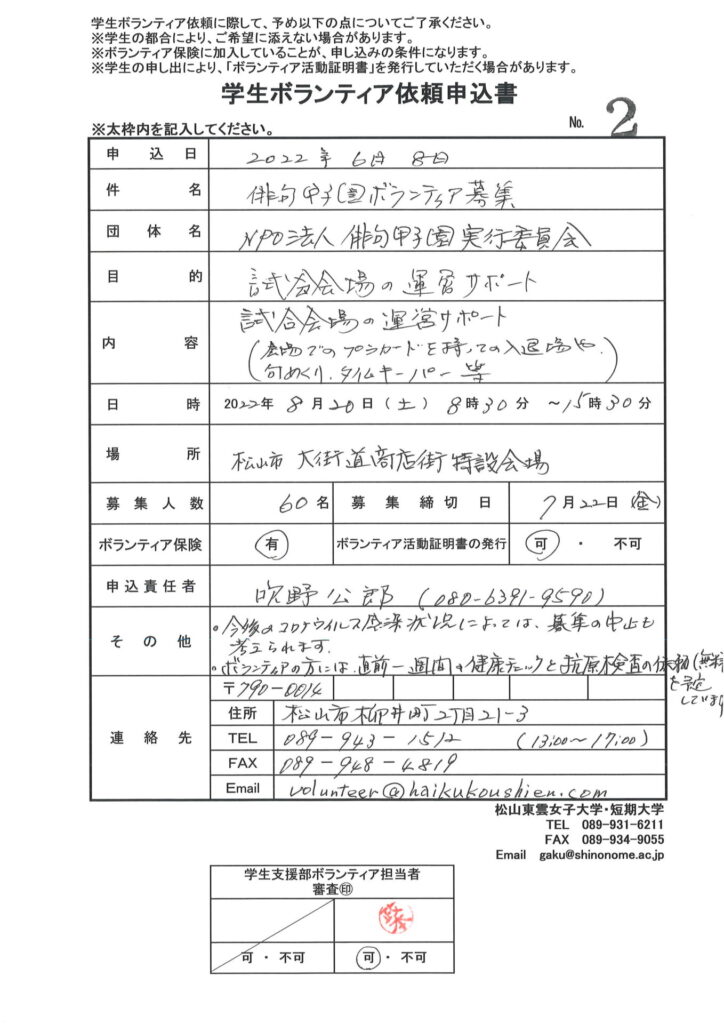 学生ボランティア依頼に際して、予め以下の点についてご了承ください。
※学生の都合により、ご希望に添えない場合があります。
※ボランティア保険に加入していることが、申し込みの条件になります。
※学生の申し出により、「ボランティア活動証明書」を発行していただく場合があります。
学生ボランティア依頼申込書
※太枠内を記入してください。 No. 2
申込日 2022年 6月 8日
件名 俳句甲子園ボランティア募集
団体名 NPO法人 俳句甲子園実行委員会
目的 試合会場の運営サポート
内容 試合会場の運営サポート
(会場でのプラカードを持っての入退場や、
句めくり、タイムキーパー 等)
日時 2022年 8月20日(土) 8時30分 ~15時30分
場所 松山市 大街道商店街 特設会場
募集人数 60名 募集締切日 7月22日(金)
ボランティア保険 有 ボランティア活動証明書の発行 可・不可
申込責任者 吹野公郎 (080-6391-9590)
その他 。今後のコロナウイルス感染状況によっては、募集の中止も
考えられます。
。ボランティアの方には、直前一週間の健康チェックと抗原検査の依頼(無料)
を予定
しています
連絡先 〒790-0014
住所 松山市柳井町2丁目21-3
TEL 089-943-1512 (13:00~17:00)
FAX 089-948-4819
Email volunteer@haikukoushien.com
松山東雲女子大学・短期大学
TEL 089-931-6211
FAX 089-934-9055
Email gaku@shinonome.ac.jp
学生支援部ボランティア担当者
審査㊞
可・不可 可・不可